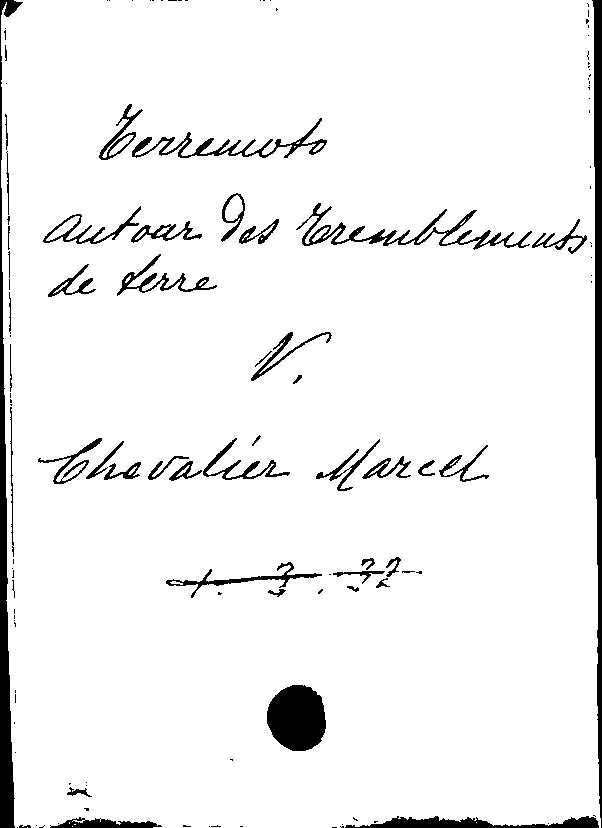 Terremoto
autour des Tremblements
de terre
V.
Chevalier Marcel
1. 3. 32